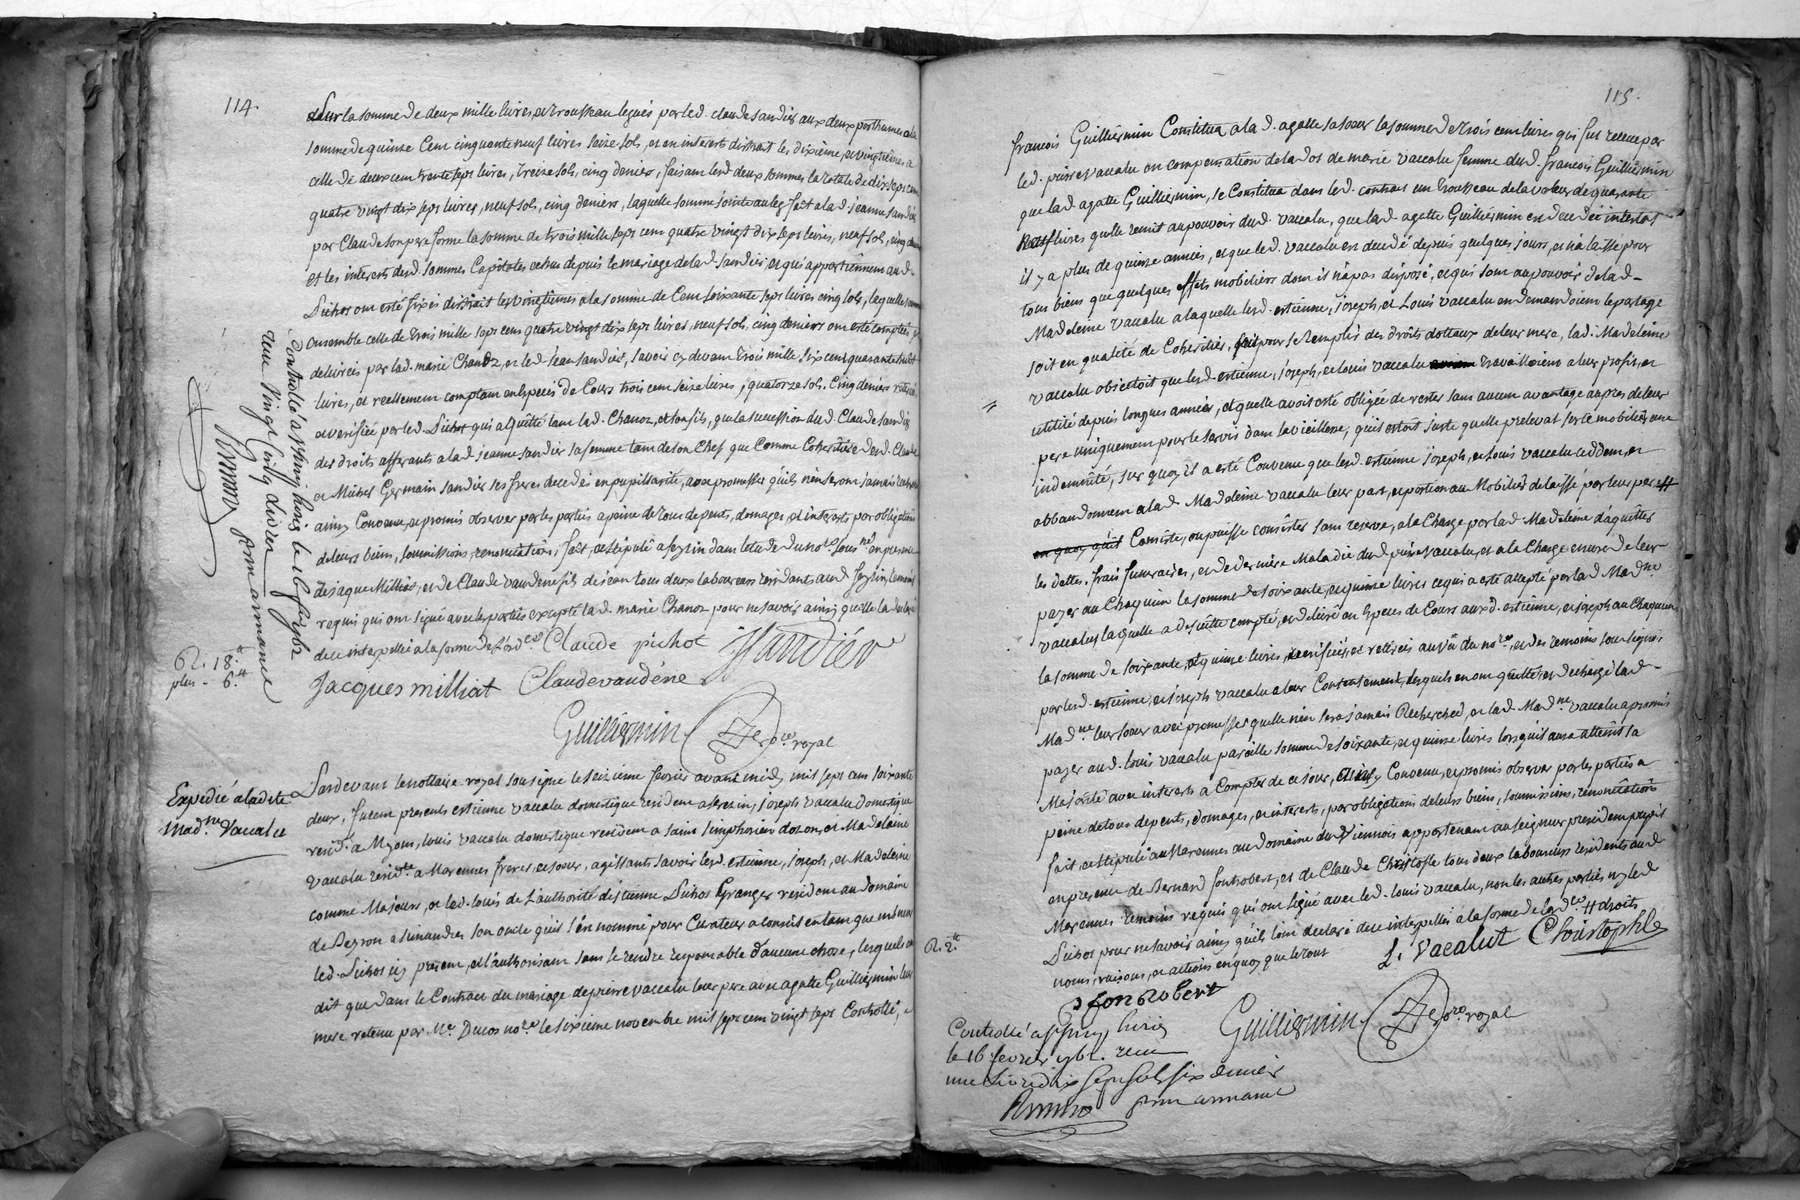 114.
sur la somme de deux mille livres, et trousseau legués par led. claude sandier aux deux posthumes a la
somme de quinze Cent cinquante neuf livres seize sols, et en interests distrait les dixieme, et vingtiemes a
celle de deux cent trente sept livres, treize sols, cinq deniers, faisant lesd. deux sommes la totale de dix sept cent
quatre vingt dix sept livres, neuf sols, cinq deniers, laquelle somme jointe au leg fait a lad. jeanne sandier
par Claude son pere forme la somme de trois mille sept cent quatre vingt dix sept livres, neuf sols, cinq deniers
et les interests desd. sommes Capitales echus depuis le mariage de lad. sandier, et qui appartiennent aud.
Pichot ont esté fixés distrait les vingtiemes a la somme de Cent soixante sept livres cinq sols, laquelle somme
ensemble celle de trois mille sept cent quatre vingt dix sept livres, neuf sols, cinq deniers ont esté comptées
delivrées par lad. marie Chanoz, et led. jean sandier, savoir cy devant trois mille six cent quarante huit
livres, et reellement comptant en especes de Cours trois cent seize livres, quatorze sols. Cinq deniers retirée
et verifiée par led. Pichot qui a quitté tant lad. Chanoz, et son fils, que la succession dud. Claude sandier
des droits afferants a lad. jeanne sandier sa femme tant de son Chef que Comme Coheritiere desd. Claude
et Michel Germain sandier ses freres decedés en pupillarité, avec promesses qu'ils n'en seront jamais recherchés
ainsy Convenu, et promis observer par les parties a peine de tous depents, domages, et interests par obligation
de leurs biens, soumissions, renonciations, fait, et stipulé a feyzin dans letude du no.re sous.né en presence
de jaque Milliat, et de Claude vaudene fils de jean tous deux laboureurs residants aud. feyzin temoins
requis qui ont signé avec les parties excepté lad. marie Chanoz pour ne savoir ainsy qu'elle la declaré
de ce interpellée a la forme de l'ord.ce Claude pichot JSandiér
Jacques milliat Claudevaudéne
Guilliermin No.re royal
Controllé a St Simphorien le 16 fev. 1762
Expedié a ladite
Mad.ne Vacalu
Pardevant le nottaire royal soussigné le seizieme fevrier avant midy mil sept cens soixante
deux, furent presents estienne vaccalu domestique resident a serezin, joseph vaccalu domestique
resid.t a Myons, louis vaccalu domestique resident a saint simphorien dozon, et Madelaine
vaccalu resid.te a Marennes freres, et soeur, agissants savoir lesd. estienne, joseph, et Madeleine
comme Majeurs, et led. louis de l'authorité d'estienne Pichot Granger resident au domaine
de Peyron a simandres son oncle qu'il s'en nommé pour Curateur a conseil en tant que mineur
led. Pichot icy present, et l'authorisant sans se rendre responsable d'aucune chose, lesquels ont
dit que dans le Contract du mariage de pierre vaccalu leur pere avec agatte Guilliermin leur
mere retenu par Me. Ducos no.re le sixieme novembre mil sept cent vingt sept Controllé,
115.
francois Guilliermin Constitua a lad. agatte sa soeur la somme de trois cent livres qui fut receue par
led. pierre vaccalu en compensation de la dot de marie vaccalu femme dud. francois Guilliermin
que lad. agatte Guilliermin, se Constitua dans led. contract un trousseau de la valeur de quarante
livres quelle remit au pouvoir dud. vaccalu, que lad. agatte Guilliermin est decedée intestat
il y a plus de quinze années, et que led. vaccalu est decedé depuis quelques jours, et n'a laissé pour
tous biens que quelques effets mobiliers dont il n'a pas disposé, et qui sont au pouvoir de lad.
Madeleine vaccalu a laquelle lesd. estienne, joseph, et Louis vaccalu en demandoient le partage
soit en qualité de Coheritiers, soit pour se remplir des droits dottaux de leur mere, lad. Madeleine
vaccalu objectoit que lesd. estienne, joseph, et Louis vaccalu travailloient a leur profit, et
utilité depuis longues années, et quelle avoit esté obligée de rester sans aucun avantage aupres de leur
pere uniquement pour le servir dans la vieillesse, qu'il estoit juste quelle prelevat sur le mobilier une
indemnité, sur quoy il a esté Convenu que lesd. estienne joseph, et Louis vaccalu cedent, et
abbandonnent a lad. Madeleine vaccalu leur part, et portion au Mobilier delaissé par leur pere #
en quoy qu'il Consiste, ou puisse consister sans reserve, a la Charge par lad. Madeleine d'aquitter
les dettes, frais funeraires, et de derniere Maladie dud. pierre vaccalu, et a la Charge encore de leur
payer au Chaquun la somme de soixante, et quinze livres ce qui a esté accepté par lad. Mad.ne
vaccalu, laquelle a de suitte compté, et delivré en Especes de Cours auxd. estienne, et joseph au Chaquun
la somme de soixante, et quinze livres, verifiées, et retirées au vu du no.re, et des temoins soussignés
par lesd. estienne, et joseph vaccalu a leur Contentement, desquels en ont quitté, et dechargé lad.
Mad.ne leur soeur avec promesses quelle n'en sera jamais Recherchée, et lad. Mad.ne vaccalu a promis
payer aud. louis vaccalu pareille somme de soixante, et quinze livres lorsquil aura atteint sa
Majorité avec interests a Compter de ce jour, ainsy Convenu, et promis observer par les parties a
peine de tous depents, domages, et interests, par obligations de leurs biens, soumissions, renonciations
fait, et stipulé au Marennes au domaine du Viennois appartenant au seigneur president pupil
en presence de Bernard fontrobert, et de Claude Christofle tous deux laboureurs residents aud.
Marennes temoins requis qui ont signé avec led. louis vaccalu, non les autres parties ny led.
Pichot pour ne savoir ainsy qu'ils l'ont declaré de ce interpellés a la forme de l'ord.ce # droits
noms, raisons, et actions en quoy que le tout
L. Vacalut Christophle
B fontRobert
Guilliermin No.re royal
Controllé a St Simph.n
le 16 fevrier 1762. recu
une livre dix sept sols six deniers